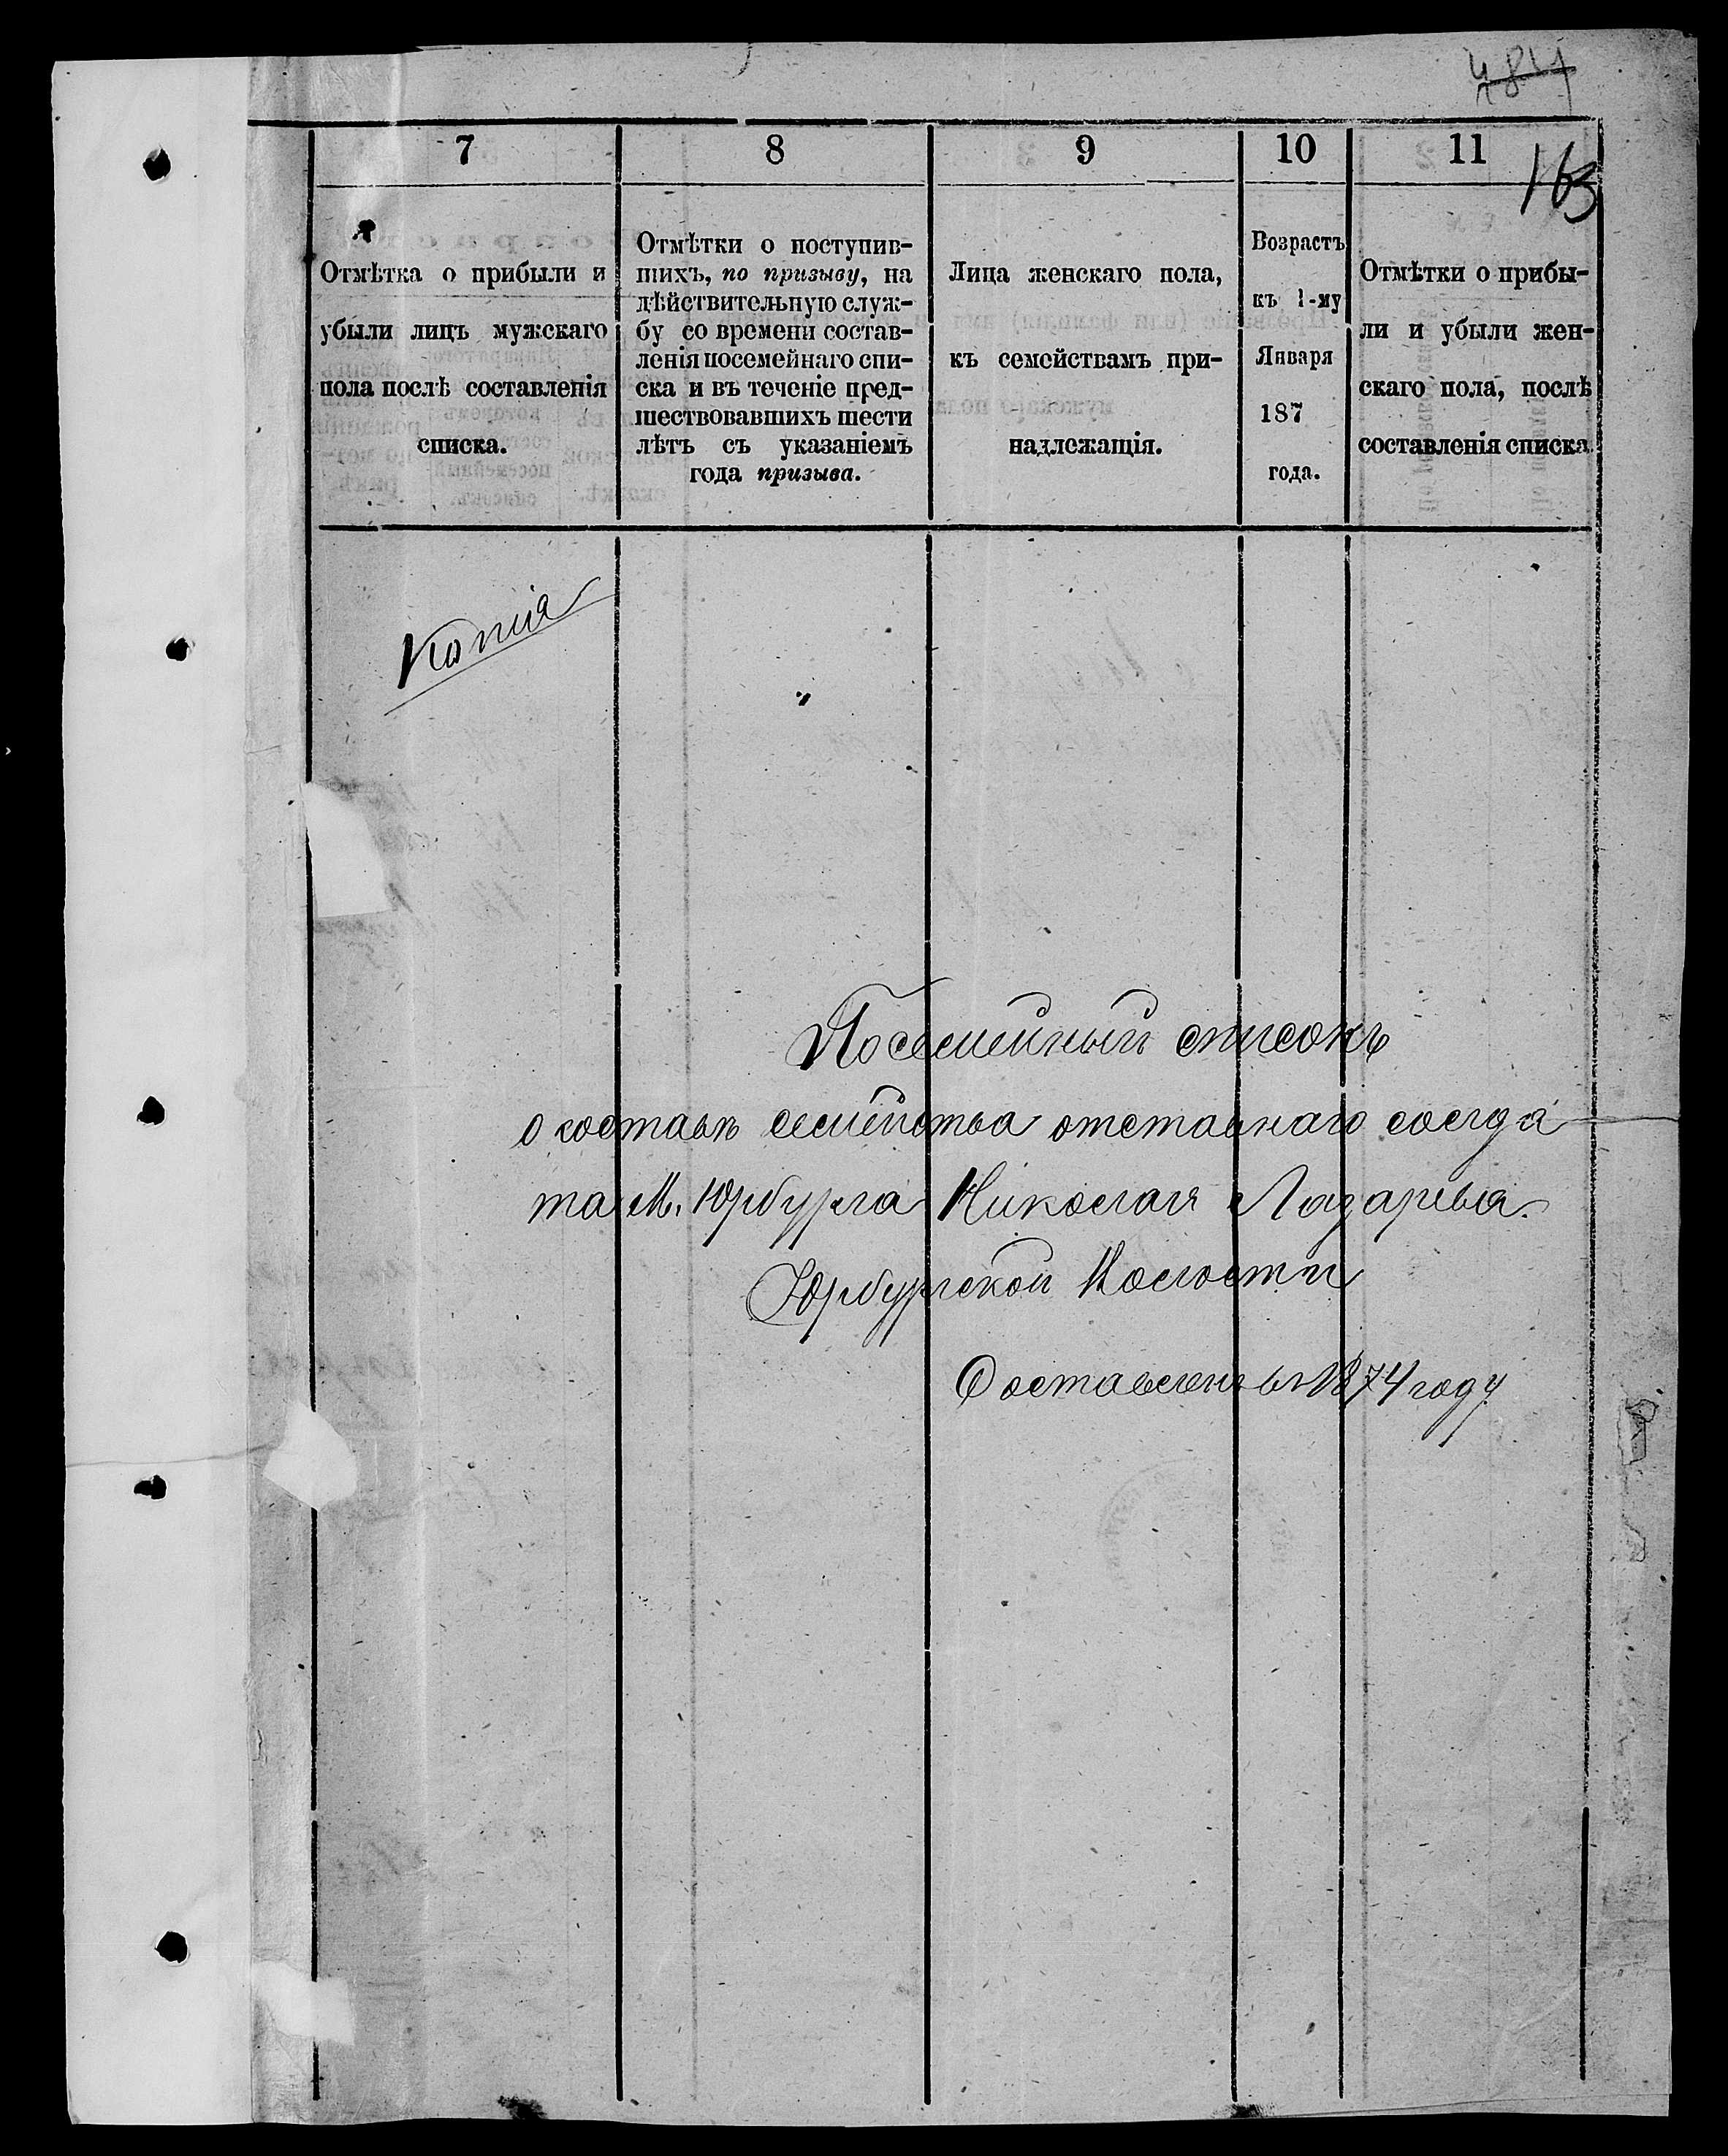 163
7
8
9
10
11
Отмѣтка о прибыли и
убыли лицъ мужскаго
пола послѣ составленія
списка.
Отмѣтки о поступив-
шихъ, по призыву, на
дѣйствительную служ-
бу со времени состав-
ленія посемейнаго спи-
ска и въ теченіе пред-
шествовавшихъ шести
лѣтъ съ указаніемъ
года призыва.
Лица женскаго пола,
къ семействамъ при-
надлежащія.
Возрастъ
къ 1-му
Января
187
года.
Отмѣтки о прибы-
ли и убыли жен-
скаго пола, послѣ
составленія списка.
Копія
Посемейный списокъ
о составѣ семейства отставнаго солда
та М. Юрбурга Николая Лазарева
Юрбургской Волости
Составленъ въ 1874 году